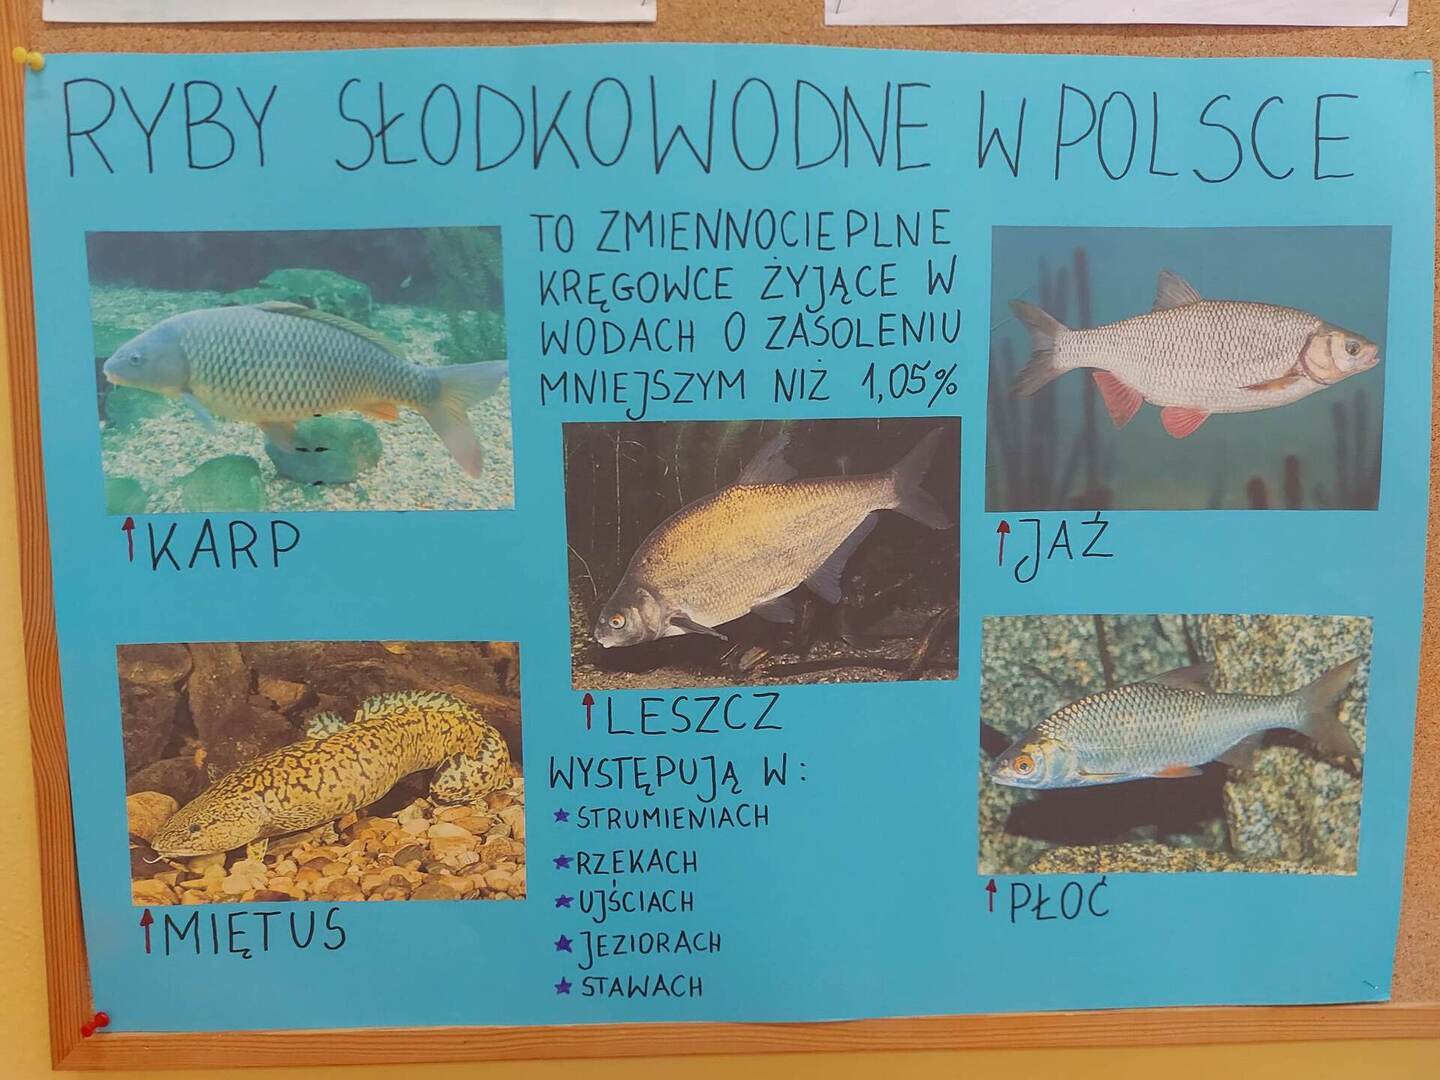 RYBY SŁODKOWODNE W POLSCE
TO ZMIENNOCIEPLNE
KRĘGOWCE ŻYJĄCE W
WODACH O ZASOLENIU
MNIEJSZYM NIŻ 1,05%
KARP
JAŹ
LESZCZ
MIĘTUS
PŁOĆ
WYSTĘPUJĄ W:
STRUMIENIACH
RZEKACH
UJŚCIACH
JEZIORACH
STAWACH